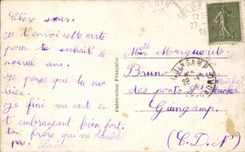 Chère sœur
je t'envoi cette carte
pour te souhaité le
nouvel ans.
Je pense que tu va
bien.
je fini ma cart en
t embrassant bien fort,
ton frère qui ne t'oublie
pas. Louis
Fabrication Française
Mlle Marguerite
Bruno
des ponts St Michel
Guingamp
(C.D.N)
GUINGAMP